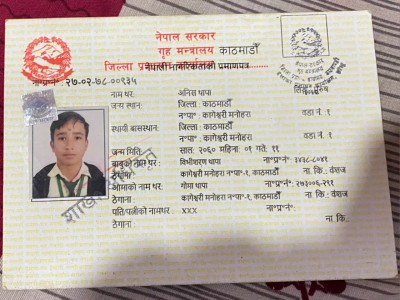 नेपाल सरकार
गृह मन्त्रालय काठमाडौँ
नेपाली नागरिकताको प्रमाणपत्र
२७-०२-७८-००९३५
नाम थर: अनिस थापा
जन्म स्थान: जिल्ला : काठमाडौँ
न॰पा॰ : कागेश्वरी मनोहरा वडा नं. १
स्थायी बासस्थान: जिल्ला : काठमाडौँ
न॰पा॰ : कागेश्वरी मनोहरा वडा नं. १
जन्म मिति: साल: २०६० महिना: ०१ गते: ११
बाबुको नाम थर: ना॰प्र॰नं॰:
ठेगाना: कागेश्वरी मनोहरा न॰पा॰-१, काठमाडौँ ना. कि.: वंशज
आमाको नाम थर: गोमा थापा ना॰प्र॰नं॰:
ठेगाना: कागेश्वरी मनोहरा न॰पा॰-१, काठमाडौँ ना. कि.: वंशज
पति/पत्नीको नामथर: XXX ना॰प्र॰नं॰:
ठेगाना: ना कि: